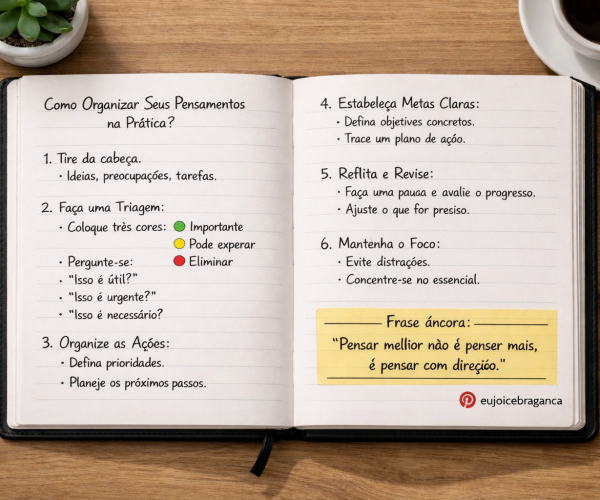 Como Organizar Seus Pensamentos
na Prática?
1. Tire da cabeça.
• Ideias, preocupações, tarefas.
2. Faça uma Triagem:
• Coloque três cores: Importante
Pode experar
• Pergunte-se: Eliminar
• "Isso é útil?"
• "Isso é urgente?"
• "Isso é necessário?
3. Organize as Ações:
• Defina prioridades.
• Planeje os próximos passos.
4. Estabeleça Metas Claras:
• Defina objetives concretos.
• Trace um plano de açóo.
5. Reflita e Revise:
• Faça uma pauaa e avalie o progresso.
• Ajuste o que for preciso.
6. Mantenha o Foco:
• Evite distraçóes.
• Concentre-se no essencial.
Frase áncora:
"Pensar mellior nào é penser mais,
é pensar com direçióo."
eujoicebraganca